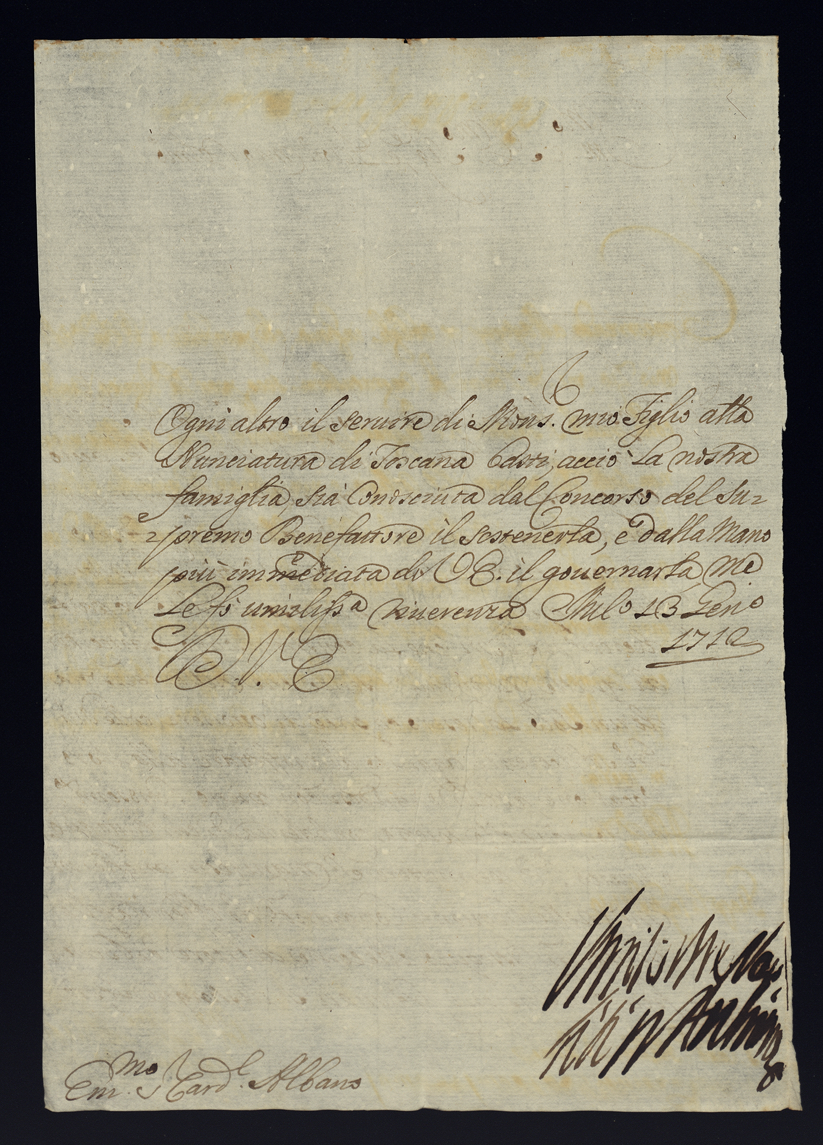 Ogni altro il seruire di Mons. mio Figlio alla
Nunciatura di Toscana basti, acciò la nostra
famiglia sia conosciuta dal Concorso del Su=
=premo Benefattore il sostenerla, e dalla Mano
più immediata di VE. il gouernarla, Me
Le fo umiliss.a riuerenza Mil.o 13 Gen.o
1712
D. V. E
Em.mo S. Card.l Albano